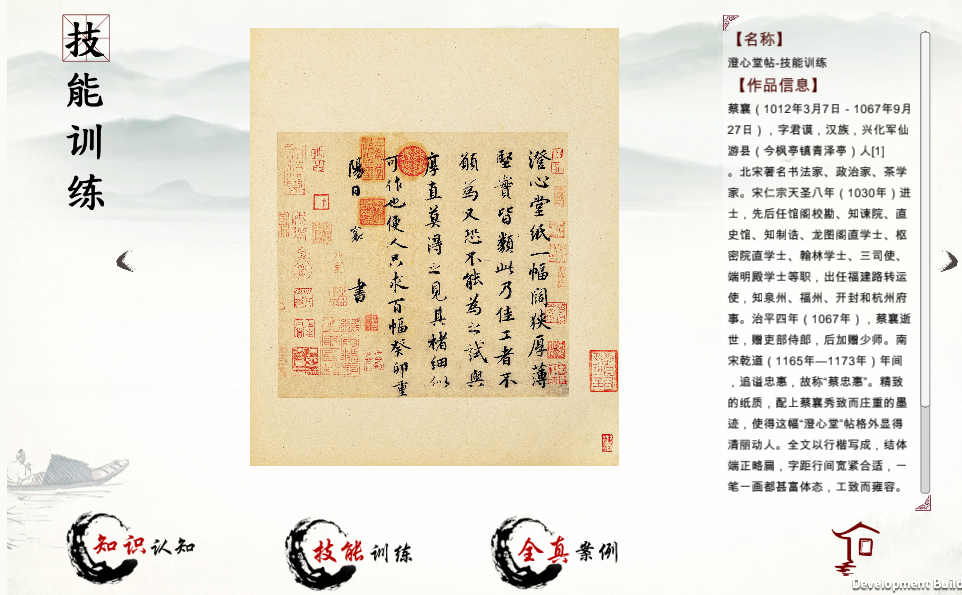 技能训练
澄心堂纸一幅阔狭厚薄
坚实皆类此乃佳工者不
愿为又恐不能为之试与
厚直莫得之见其楮细似
可作也便人只求百幅癸卯重
阳日襄书
【名称】
澄心堂帖-技能训练
【作品信息】
蔡襄（1012年3月7日－1067年9月
27日），字君谟，汉族，兴化军仙
游县（今枫亭镇青泽亭）人[1]
。北宋著名书法家、政治家、茶学
家。宋仁宗天圣八年（1030年）进
士，先后任馆阁校勘、知谏院、直
史馆、知制诰、龙图阁直学士、枢
密院直学士、翰林学士、三司使、
端明殿学士等职，出任福建路转运
使，知泉州、福州、开封和杭州府
事。治平四年（1067年），蔡襄逝
世，赠吏部侍郎，后加赠少师。南
宋乾道（1165年—1173年）年间
，追谥忠惠，故称“蔡忠惠”。精致
的纸质，配上蔡襄秀致而庄重的墨
迹，使得这幅“澄心堂”帖格外显得
清丽动人。全文以行楷写成，结体
端正略扁，字距行间宽紧合适，一
笔一画都甚富体态，工致而雍容。
知识认知
技能训练
全真案例
Development Build